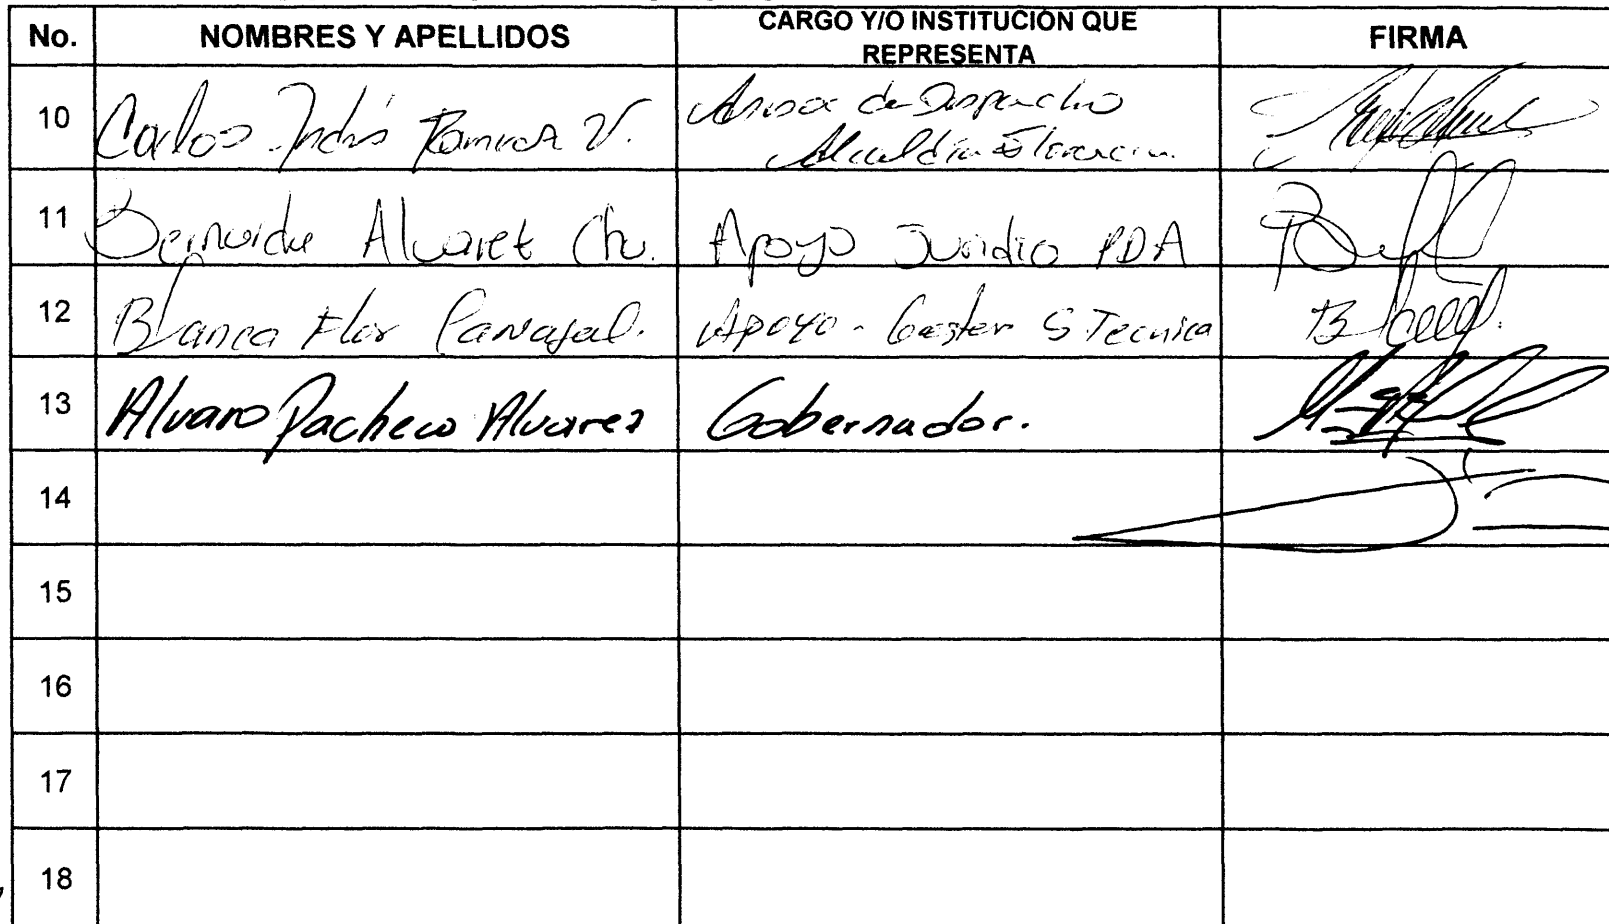 No. NOMBRES Y APELLIDOS CARGO Y/O INSTITUCIÓN QUE REPRESENTA FIRMA
10 Carlos Andrés Ramirez V. Asesor de Despacho
Alcaldía Florencia.
11 Alvarez Ch. Apoyo Juridico PDA
12 Blanca Flor Carvajal. Apoyo - Gestor S Tecnica
13 Alvaro Pacheco Alvarez Gobernador.
14
15
16
17
18